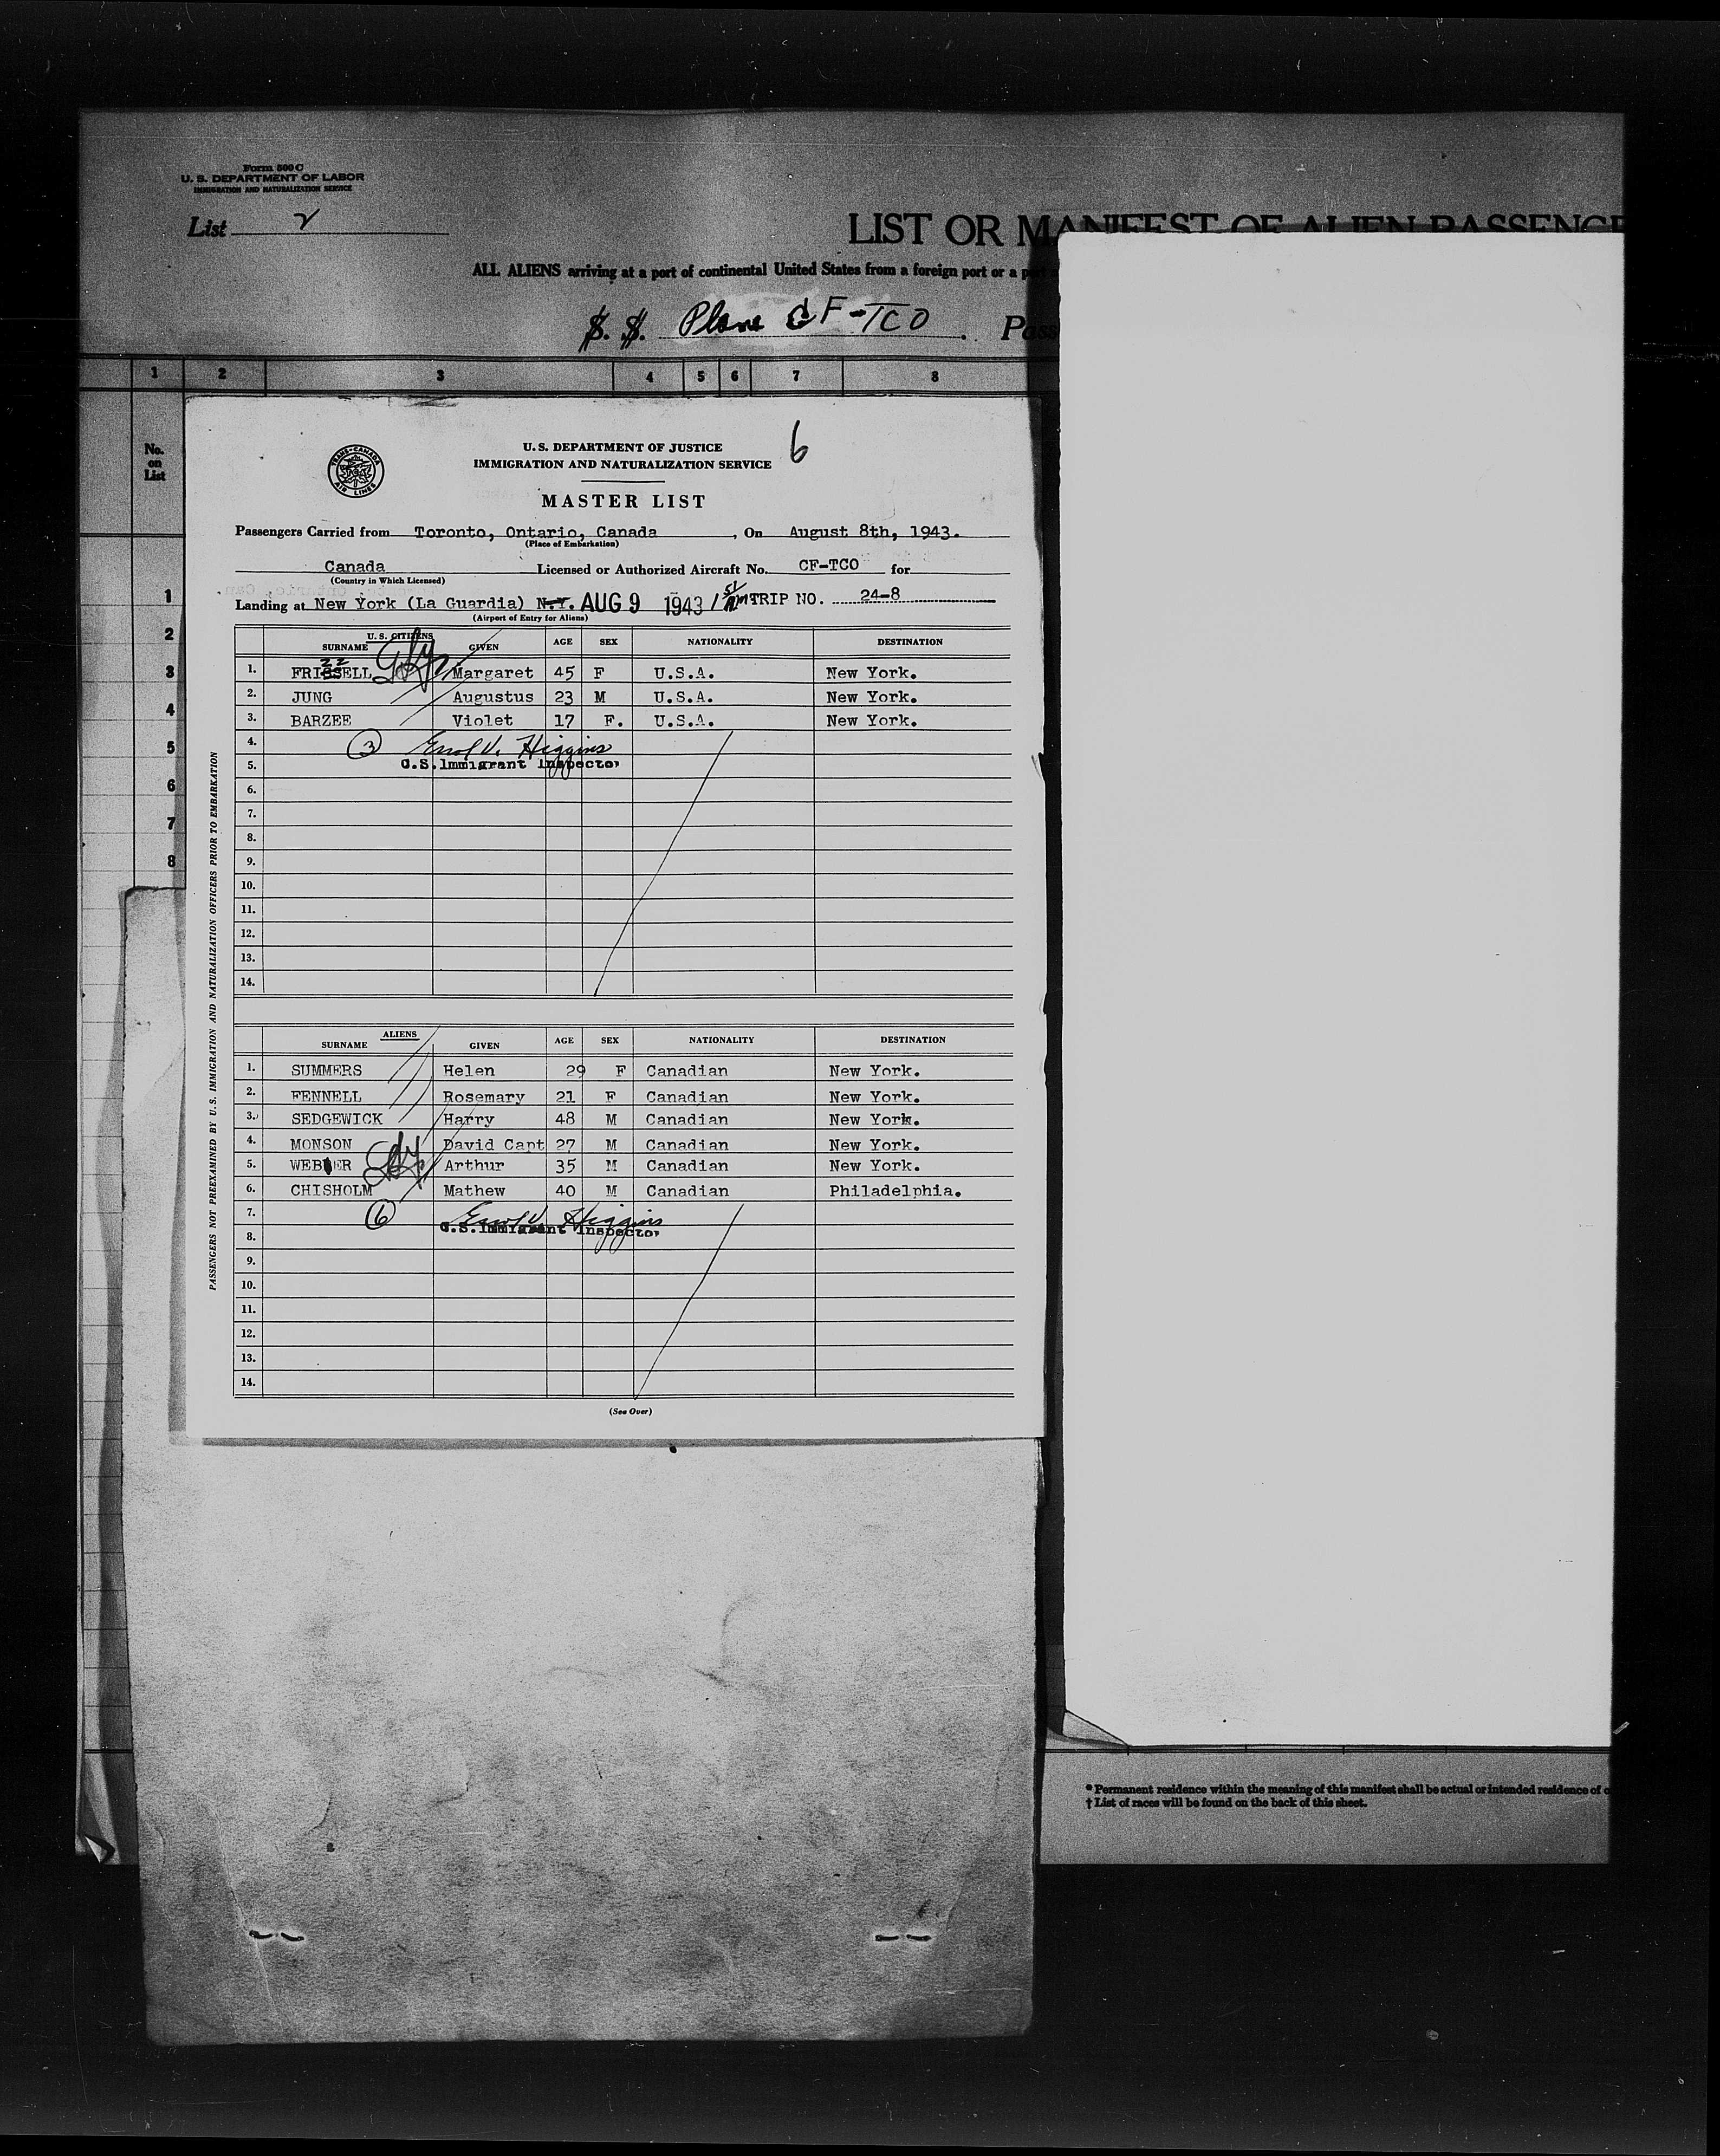 Form 500 C
U. S. DEPARTMENT OF LABOR
IMMIGRATION AND NATURALIZATION SERVICE
List 2
LIST OR MANIFEST OF ALIEN PASSENGE
ALL ALIENS arriving at a port of continental United States from a foreign port or a port
S. S. Plane CF-TCO . Pass
1 2 3 4 5 6 7 8
No. on List
1
2
3
4
5
6
7
8
TRANS-CANADA AIR LINES
U. S. DEPARTMENT OF JUSTICE
6
IMMIGRATION AND NATURALIZATION SERVICE
MASTER LIST
Passengers Carried from Toronto, Ontario, Canada , On August 8th, 1943.
(Place of Embarkation)
Canada Licensed or Authorized Aircraft No. CF-TCO for
(Country in Which Licensed)
Landing at New York (La Guardia) N.Y. AUG 9 1943 TRIP NO. 24-8
(Airport of Entry for Aliens)
U. S. CITIZENS
SURNAME GIVEN AGE SEX NATIONALITY DESTINATION
zz
1. FRISSELL Margaret 45 F U.S.A. New York.
2. JUNG Augustus 23 M U.S.A. New York.
3. BARZEE Violet 17 F. U.S.A. New York.
4. 3 Errol V. Higgins
5. U.S. Immigrant Inspector
6.
7.
8.
9.
10.
11.
12.
13.
14.
ALIENS
SURNAME GIVEN AGE SEX NATIONALITY DESTINATION
1. SUMMERS Helen 29 F Canadian New York.
2. FENNELL Rosemary 21 F Canadian New York.
3. SEDGEWICK Harry 48 M Canadian New York.
4. MONSON David Capt 27 M Canadian New York.
5. WEBER Arthur 35 M Canadian New York.
6. CHISHOLM Mathew 40 M Canadian Philadelphia.
7. 6 Errol V. Higgins
8. U.S. Immigrant Inspector
9.
10.
11.
12.
13.
14.
(See Over)
PASSENGERS NOT PREEXAMINED BY U.S. IMMIGRATION AND NATURALIZATION OFFICERS PRIOR TO EMBARKATION
* Permanent residence within the meaning of this manifest shall be actual or intended residence of o
† List of races will be found on the back of this sheet.